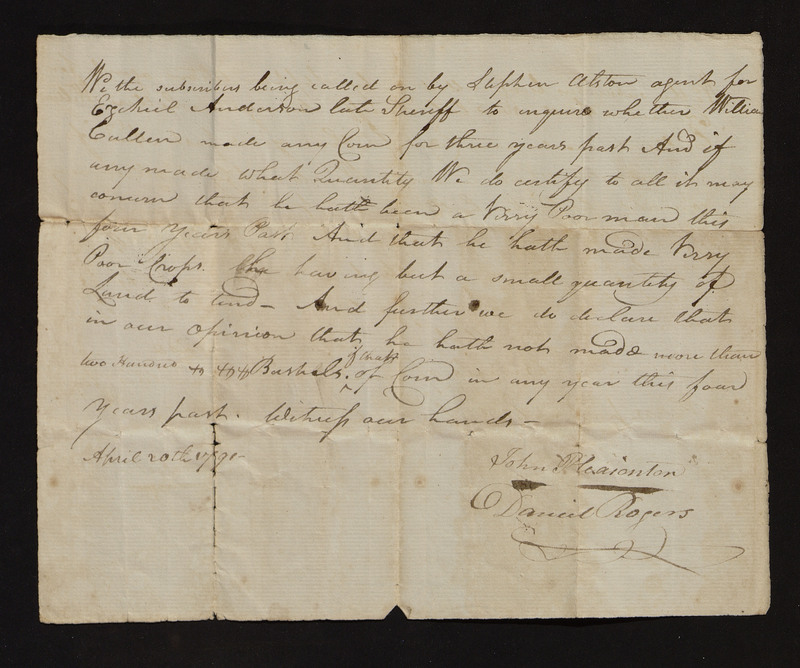 We the subscribers being called on by Stephen Alston agent for
Ezekiel Anderson late Sheriff to inquire whether Willia
Cullen made any Corn for three years past And if
any made what Quantity We do certify to all it may
concern that he hath been a Very Poor man this
four Years Past And that he hath made Very
Poor Crops. he having but a small quantity of
Land to tend – And further we do declare that
in our opinion that he hath not made more than
two Hundred Bushels. if that
of Corn in any year this four
Years past. Witness our hands –
April 20th 1791 –
John Pleasonton
Daniel Rogers